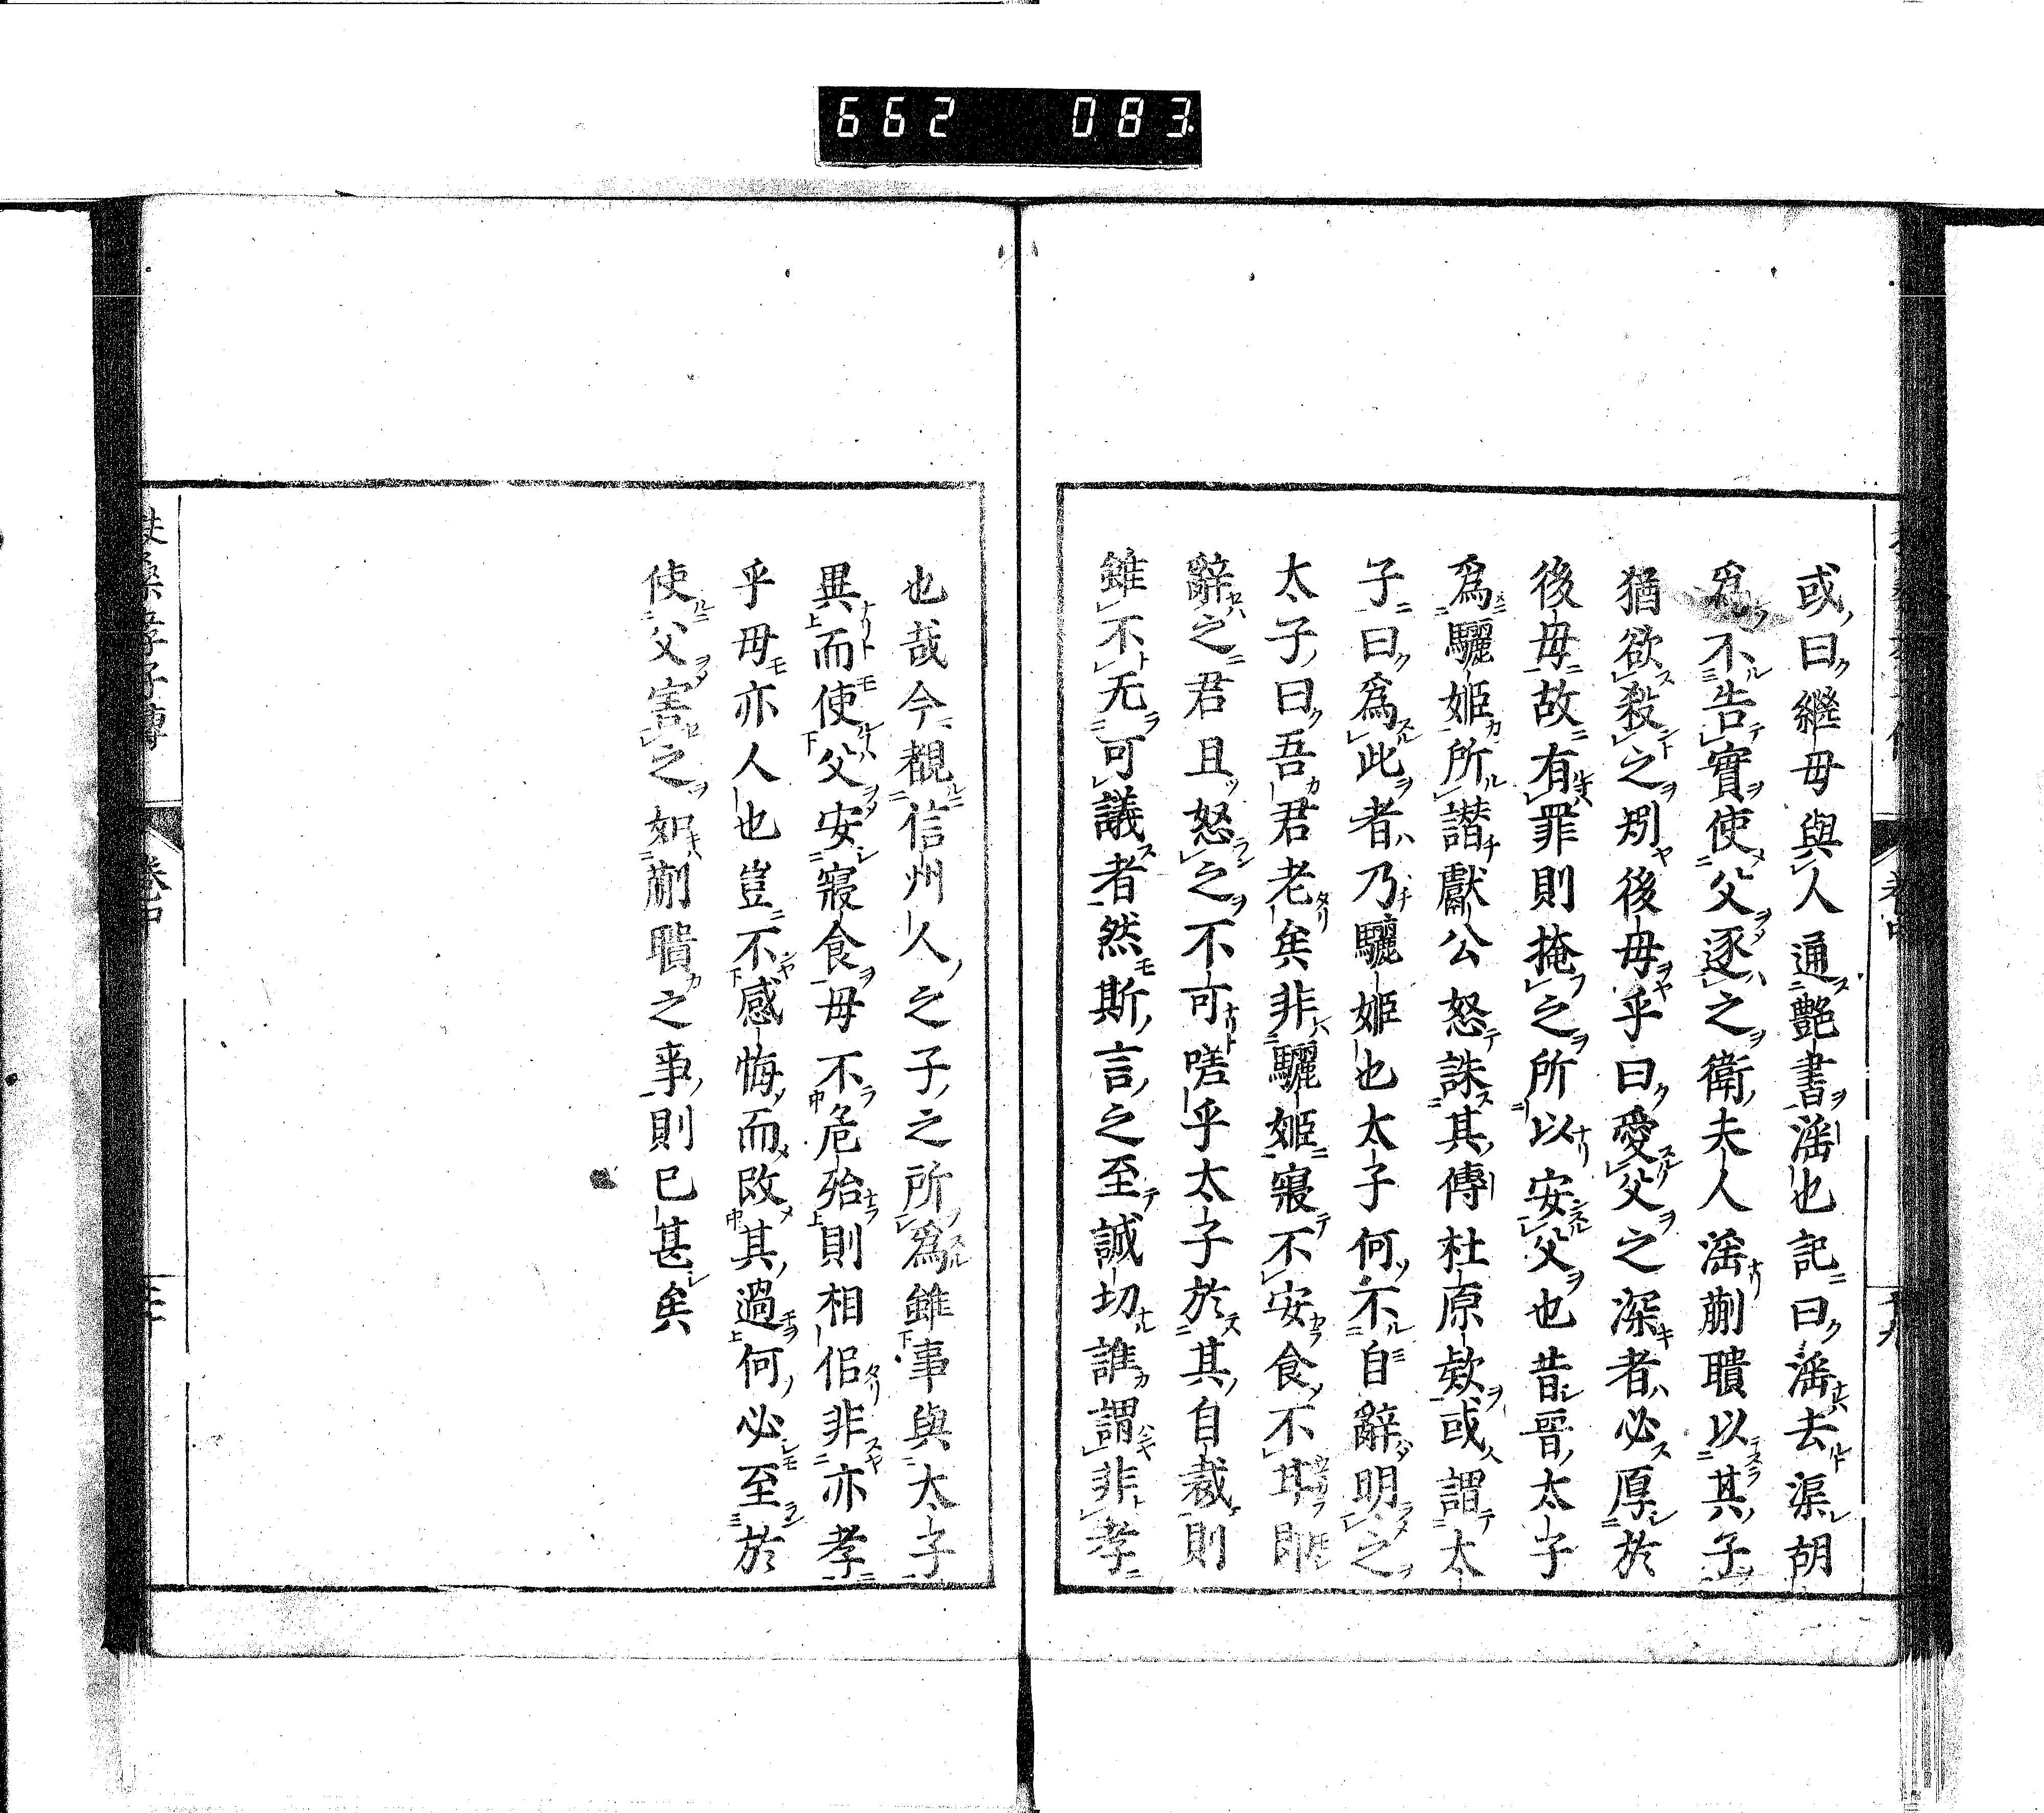 662 083
或曰繼毋與人通艶書滛也記曰滛去渠胡
爲不告實使父逐之衛夫人滛蒯聵以其子
猶欲殺之矧後毋乎曰愛父之深者必厚於
後毋故有罪則掩之所以安父也昔晋太子
爲驪姬所譛獻公怒誅其傳杜原欵或謂太
子曰爲此者乃驪姬也太子何不自辭明之
太子曰吾君老矣非驪姬寢不安食不耳即
辭之君且怒之不可嗟乎太子於其自裁則
雖不无可議者然斯言之至誠切誰謂非孝
也哉今覩信州人之子之所爲雖事與太子
異而使父安寢食毋不危殆則相侶非亦孝
乎毋亦人也豈不感悔而改其過何必至於
使父害之如蒯聵之事則已甚矣
扶桑孝子傳
卷中